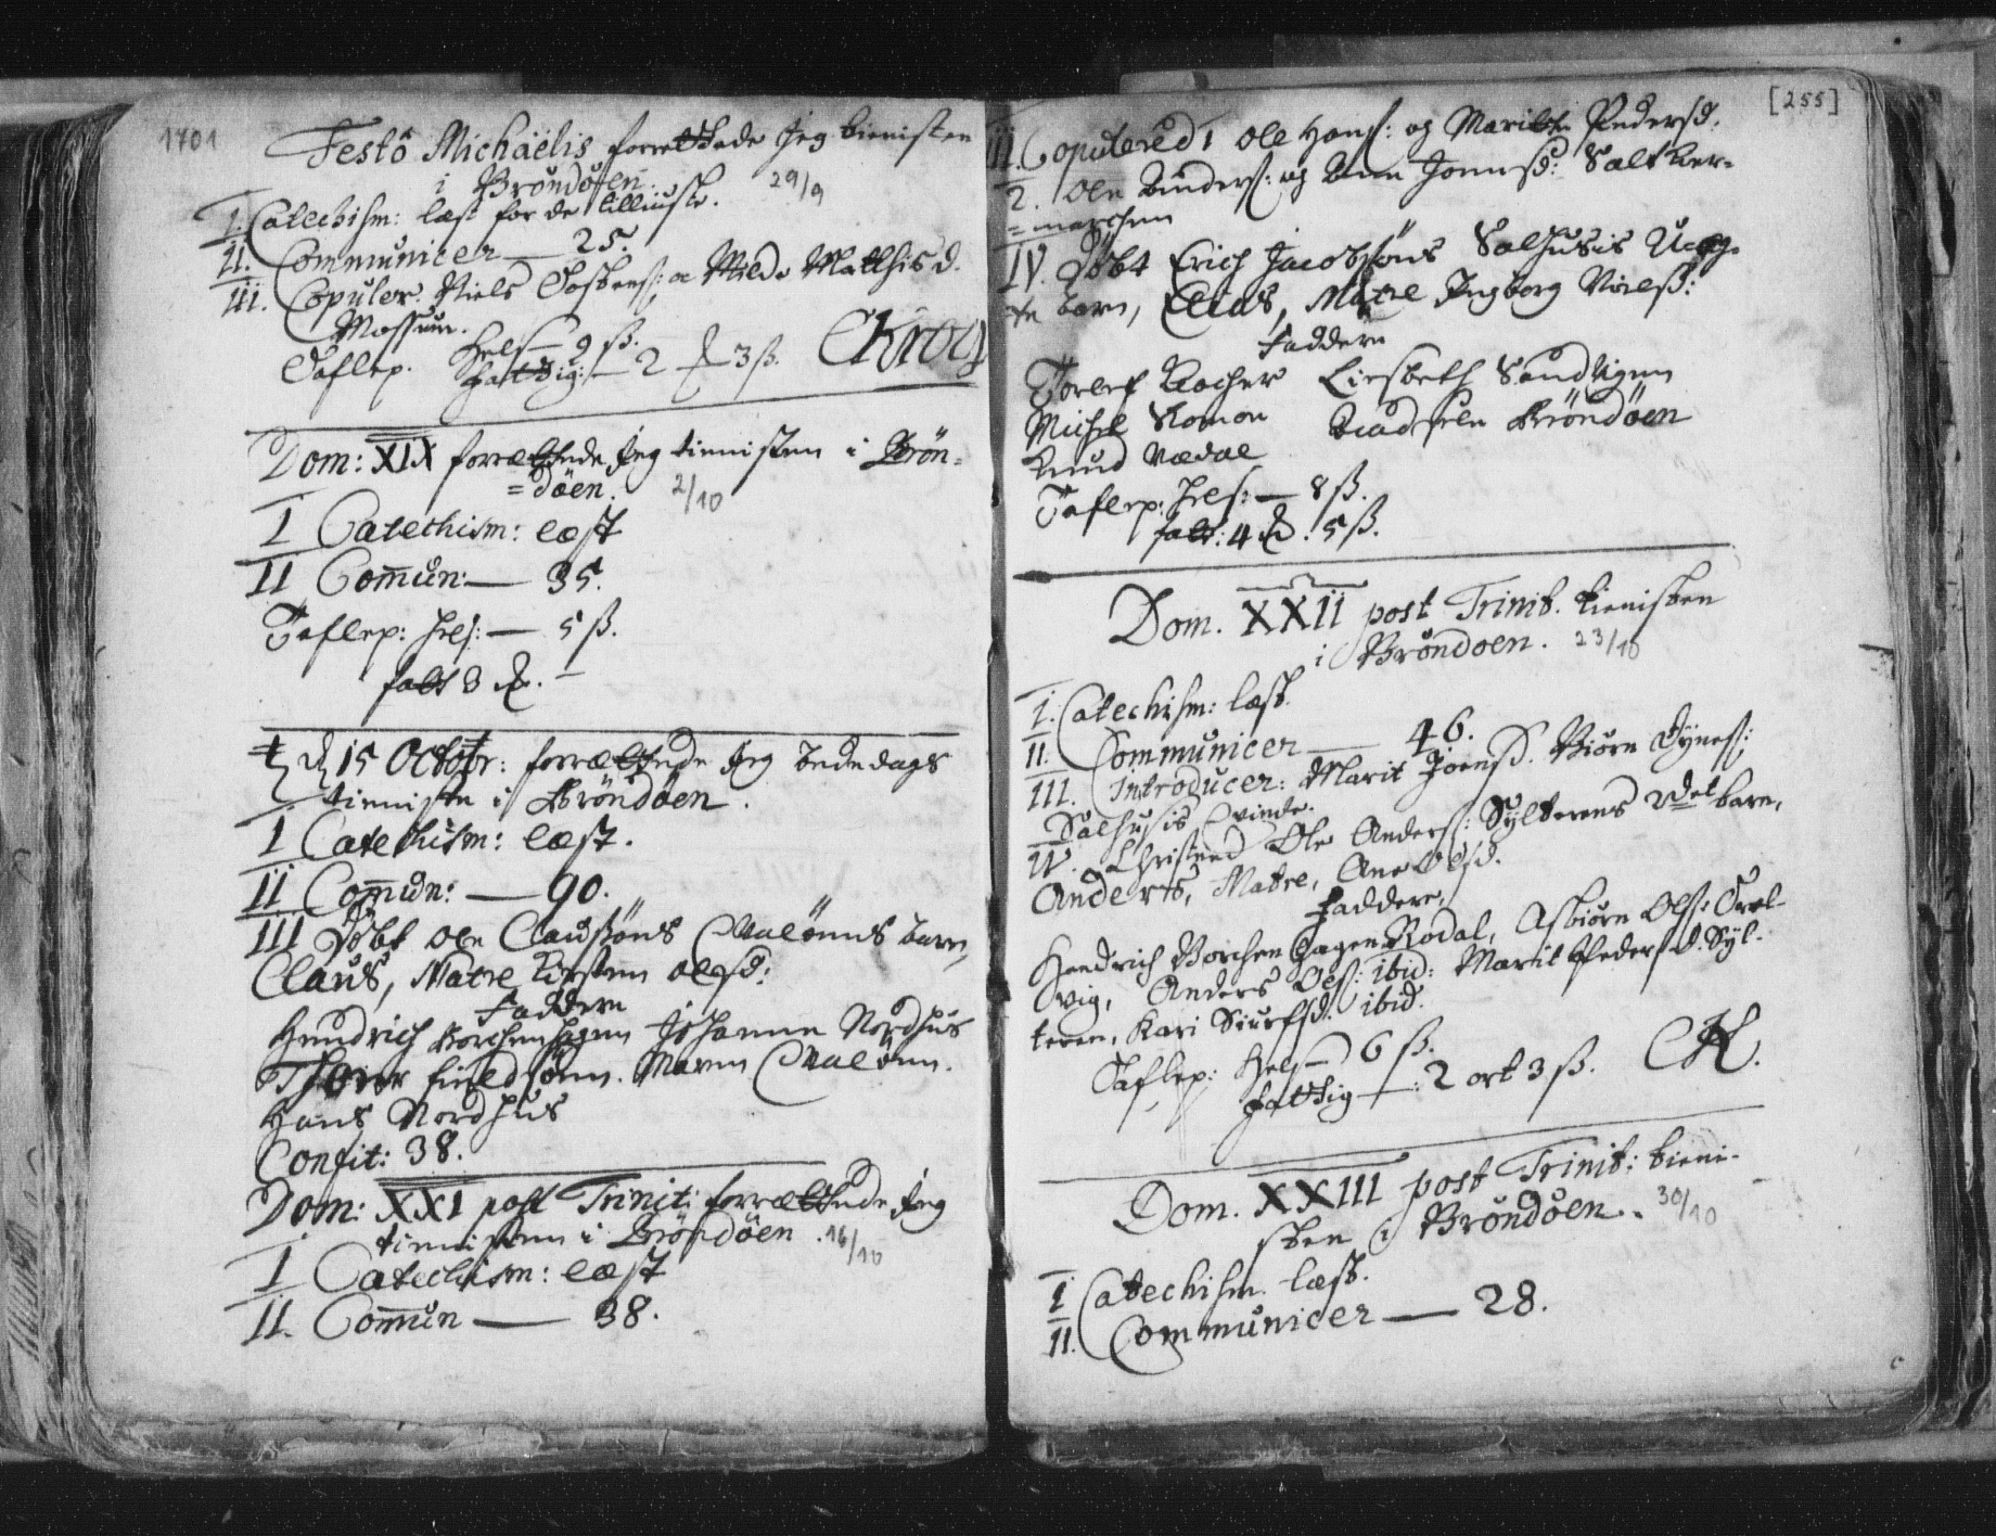 1701
Festô Michaëlis forrettede Jeg tienisten
i Brøndøen. 29/9
I. Catechism: læst for de
II. Communicer — 25.
III. Copuler. Niels Matthisd.
Taflep. Hels — 9 ß.
fattig: — 2 — 3 ß.
Dom: XIX forrættede Jeg tienisten i Brön-
=döen. 2/10
I Catechism: læst
II Com̄un: — 35.
Taflep: Hels: — 5 ß.
fatt 3
d 15 Octobr: forrættede Jeg bededags
tieniste i Bröndöen.
I Catechism: læst.
II Com̄un: — 90.
III Döbt Ole Claussöns barn,
Claus, Matre Kirsten Olsd:
Faddere
Hendrich Borchenhagen Johanne Nordhus
Maren
Hans Nordhus
Confit: 38.
Dom: XXI post Trinit: forrættede Jeg
tienisten i Bröndöen. 16/10
I Catechism: læst
II. Com̄un — 38.
[255]
III. Copulered 1 Ole Hans: og Marite Pedersd:
2. Ole Anders: og Ane Jonsd:
IV. Döbt Erich Jacobsöns Salhusis
te barn, Elias, Matre Ingborg Nielsd:
Faddere
Torlef Liesbeth Sandvigen
Michel Romon Bröndöen
Knud
Taflep: Hels: — 8 ß.
fatt: 4 . 5 ß.
Dom. XXII post Trinit. tienisten
i Brøndøen. 23/10
I. Catechism: læst.
II. Communicer — 46.
III. Introducer: Marit Joensd. Biørn
Salhusis Qvinde.
IV. Christned Ole Anders: Sylterens barn,
Anders, Matre, Ane Olsd.
Faddere,
Hendrich Borchenhagen Rodal, Asbiørn Ols:
vig, Anders Ols: ibid: Marit Pedersd. Syl-
teren, Kari Siursd: ibid.
Taflep: Hels — 6 ß.
fattig — : 2 ort 3 ß. CK.
Dom. XXIII post Trinit: tieni-
sten i Brøndøen. 30/10
I Catechism. læst.
II. Communicer — 28.